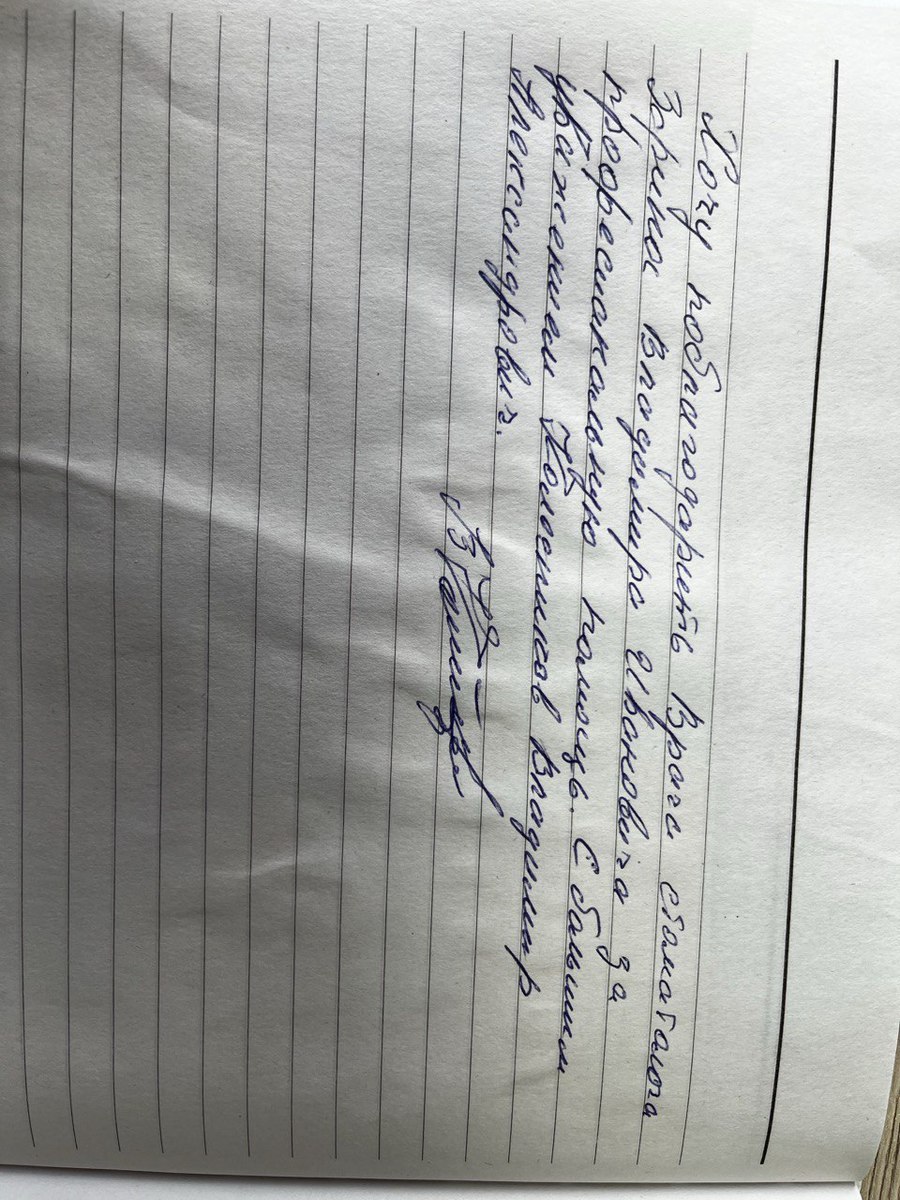 Хочу поблагодарить Врача стаматолога
Зорина Владимира Ивановича за
профессиональную помощь. С большим
уважением Колесников Владимир
Александрович.